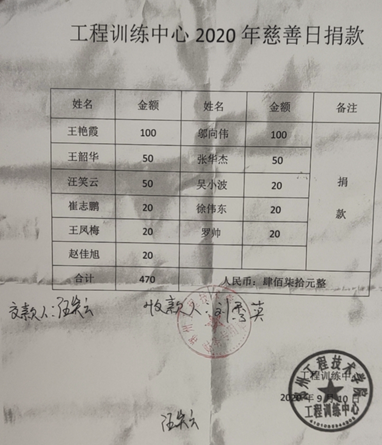 工程训练中心2020年慈善日捐款
姓名 金额 姓名 金额 备注
王艳霞 100 邬向伟 100 捐款
王韶华 50 张华杰 50
汪笑云 50 吴小波 20
崔志鹏 20 徐伟东 20
王风梅 20 罗帅 20
赵佳旭 20
合计 470 人民币：肆佰柒拾元整
交款人:汪笑云 收款人:刘秀英
工程训练中心
2020年9月10日
州工程技术学院
工程训练中心
汪笑云